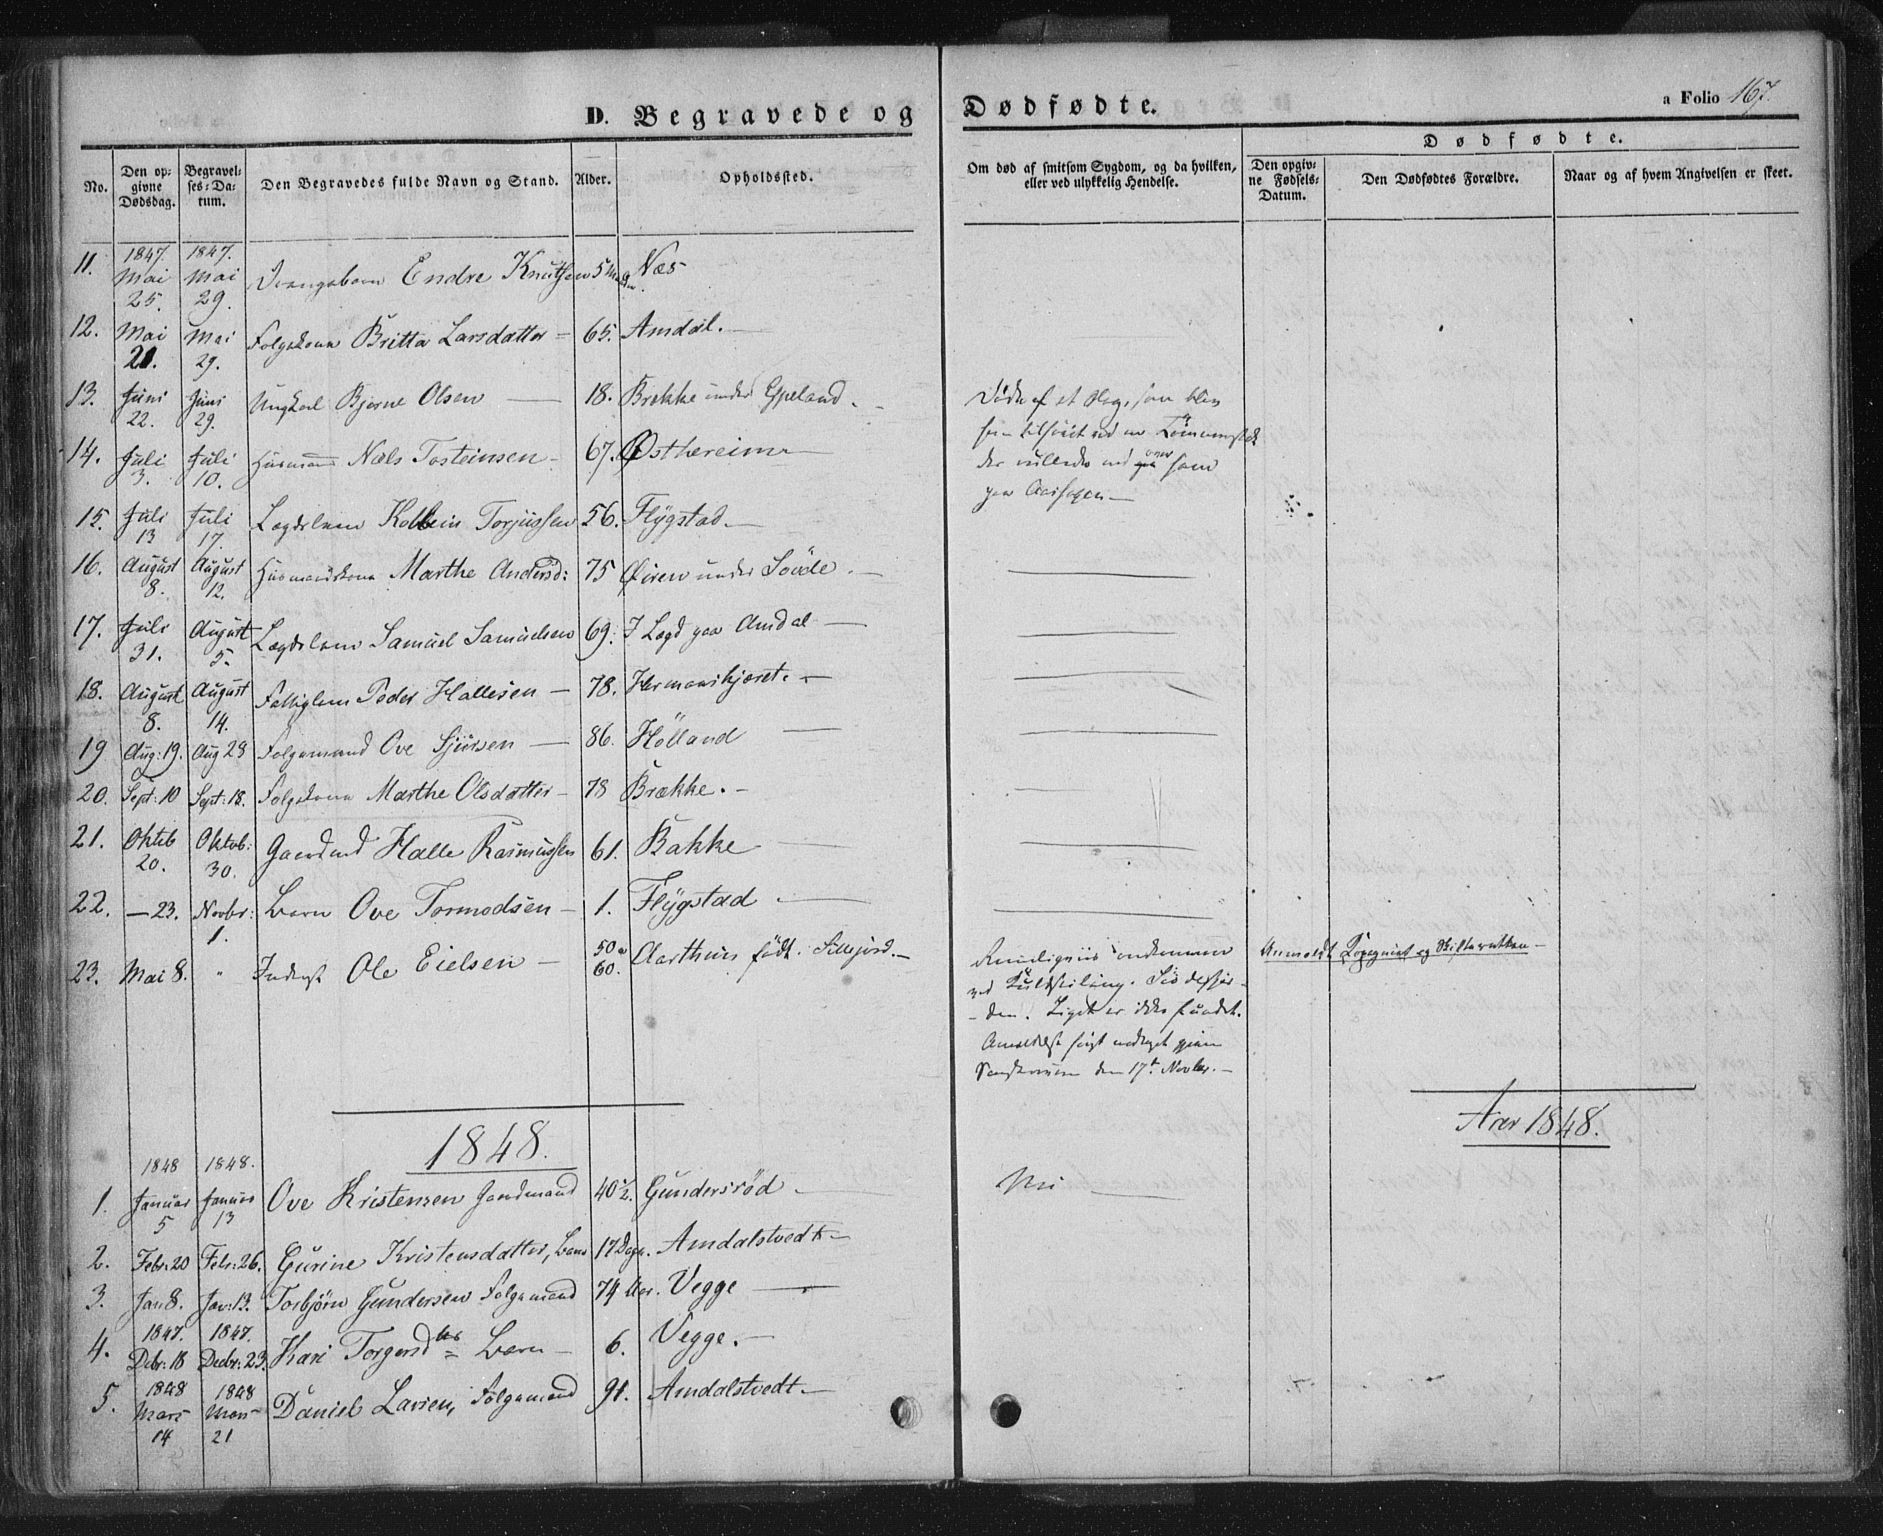 D. Begravede og Dødfødte.
a Folio 167.
No.
Den op-
givne
Dødsdag.
Begravel-
ses-Da-
tum.
Den Begravedes fulde Navn og Stand.
Alder.
Opholdsted.
Om død af smitsom Sygdom, og da hvilken,
eller ved ulykkelig Hendelse.
Dødfødte.
Den opgiv-
ne Fødsels-
Datum.
Den Dødfødtes Forældre.
Naar og af hvem Angivelsen er skeet.
1847. 1847.
11. Mai 25. Mai 29. Drengebarn Endre Knutsen 5 Næs
12. Mai 21. Mai 29. Folgekone Britta Larsdatter 65. Amdal.
13. Juni 22. Juni 29. Ungkarl Bjerne Olsen 18. Brekke under Espeland.
Døde af et Slag, som blev
14. Juli 3. Juli 10. Huusmand Næls Tosteinsen 67. Østhereim
15. Juli 13 Juli 17. Lægdslem Kolbein Torjussen 56. Flÿgstad
16. August 8. August 12. Huusmandskone Marthe Andersd: 75 Øiren under Søvde.
17. Juli 31. August 5. Lægdslem Samuel Samuelsen 69. I Lægd paa Amdal
18. August 8. August 14. Fattiglem Peder Hallesen 78. Hermanskjæret.
19 Aug: 19. Aug 28 Folgemand Ove Sjursen 86. Hölland
20. Sept: 10 Sept: 18. Folgekone Marthe Olsdatter 78 Brække.
21. Oktob 20. Oktob: 30. Gaardmd Halle Rasmussen 61. Bakke
22. — 23. Novbr: 1. Barn Ove Tormodsen 1. Flÿgstad
23. Mai 8. " Inderst Ole Eielsen 50 a 60. Aarthuus født. Sillejord.
Rimeligviis omkommen
ved Kuldseiling. Søvdefjor-
den. Liget er ikke fundet.
den 17de Novbr.
Anmeldt
1848.
Aret 1848.
1848 1848.
1. Januar 5 Januar 13 Ove Kristensen Gaardmand 40½. Gundersröd
2. Febr: 20 Febr: 26. Gurine Kristensdatter, Barn 17 Dage. Amdalstvedt
3. Jan 8. Jan: 13. Torbjörn Gundersen Folgemand 74 Aar. Vegge
1847. 1847.
4. Debr: 18 Decbr: 23. Kari Torgersdtr Barn 6. Vegge.
1848 1848
5. Mars 14 Mars 21 Daniel Larsen, Folgemand 91. Amdalstvedt